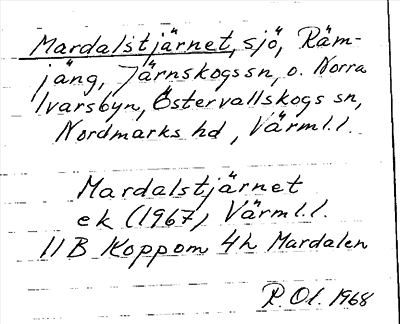 Mardalstjärnet, sjö, Räm-
jäng, Järnskogssn, o. Norra
Ivarsbyn, Östervallskogs sn,
Nordmarks hd, Värml.l.
Mardalstjärnet
ek (1967) Värml.l.
11B Koppom 4h Mardalen
P.Ol. 1968